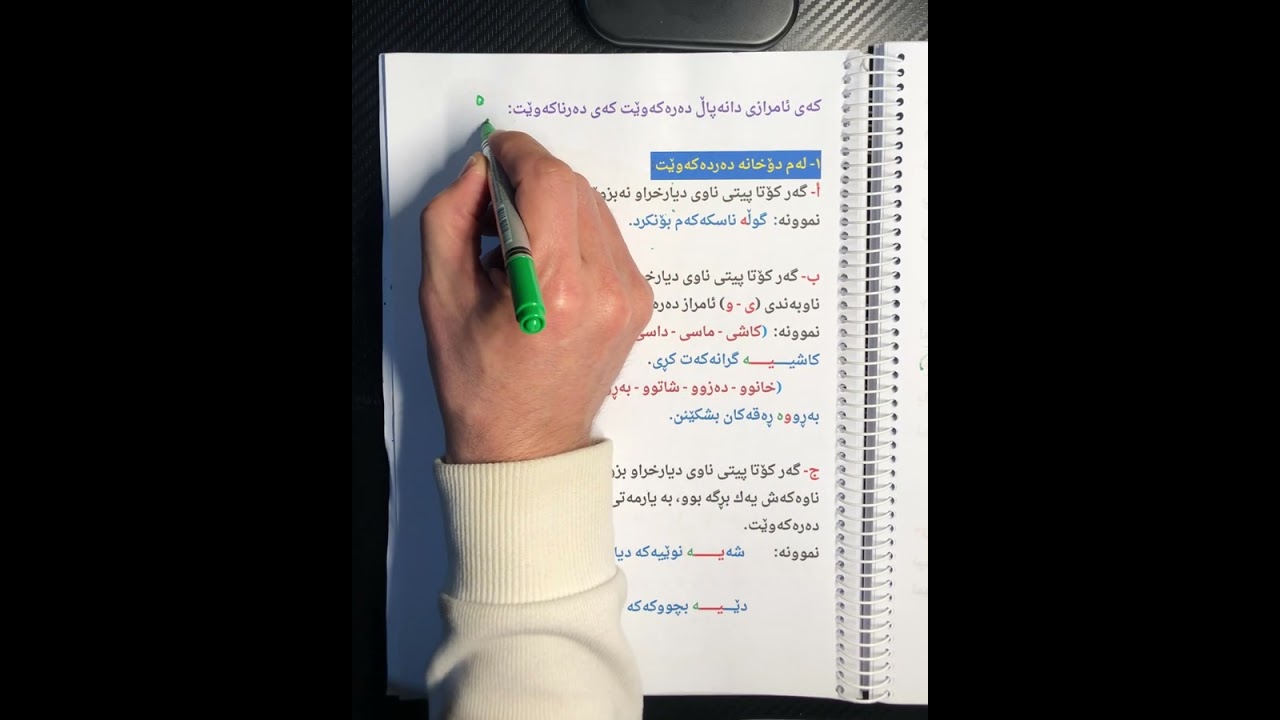 کەی ئامرازی دانەپاڵ دەرەکەوێت کەی دەرناکەوێت:
ە
١- لەم دۆخانە دەردەکەوێت
أ- گەر کۆتا پیتی ناوی دیارخراو
نموونە: گوڵە ناسکەکەم بۆنکرد.
ب- گەر کۆتا پیتی ناوی
ناوبەندی (ی - و) ئامراز
نموونە: (کاشی - ماسی - داسی
کاشیــیــە گرانەکەت کڕی.
(خانوو - دەزوو - شاتوو -
بەڕووە ڕەقەکان بشکێنن.
ج- گەر کۆتا پیتی ناوی دیارخراو
ناوەکەش یەك بڕگە بوو، بە یارمەتی
دەرەکەوێت.
نموونە: شەیــە نوێیەکە
دێــیــە بچووکەکە